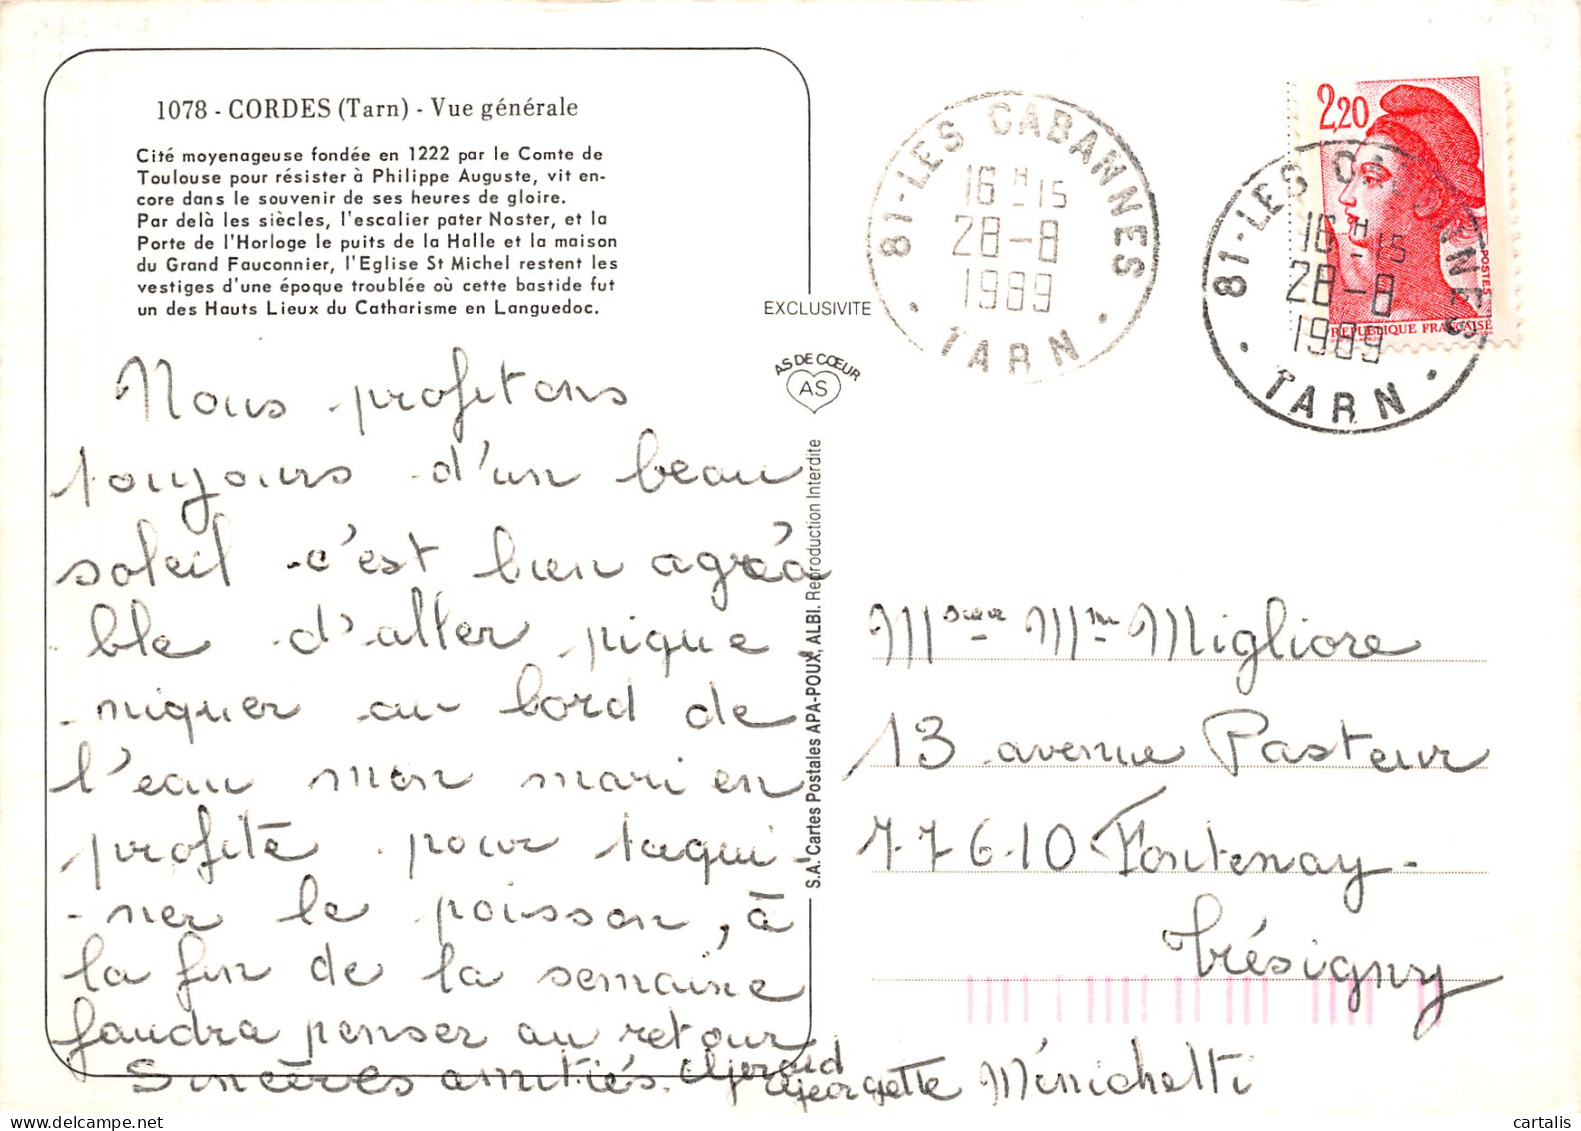 1078 - CORDES (Tarn) - Vue générale
Cité moyenageuse fondée en 1222 par le Comte de
Toulouse pour résister à Philippe Auguste, vit en-
core dans le souvenir de ses heures de gloire.
Par delà les siècles, l'escalier pater Noster, et la
Porte de l'Horloge le puits de la Halle et la maison
du Grand Fauconnier, l'Eglise St Michel restent les
vestiges d'une époque troublée où cette bastide fut
un des Hauts Lieux du Catharisme en Languedoc.
Nous profitons
toujours d'un beau
soleil c'est bien agréa
ble d'aller pique
-niquer au bord de
l'eau mon mari en
profite pour taqui-
-ner le poisson, à
la fin de la semaine
faudra penser au retour
Sincères amitiés. Gérard
Georgette Minichetti
EXCLUSIVITE
AS DE CŒUR
AS
S.A. Cartes Postales APA-POUX, ALBI. Reproduction Interdite
81-LES CABANNES
16 H 15
28-8
1989
TARN
2,20
POSTES
REPUBLIQUE FRANÇAISE
81-LES CABANNES
16 H 15
28-8
1989
TARN
Mme Migliore
13 avenue Pasteur
77610 Fontenay-
Trésigny
cartalis
delcampe.net